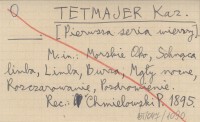 TETMAJER Kaz.
[Pierwsza seria wierszy].
M.in.: Morskie Oko, Schnąca
limba, Limba, Burza, Mgły nocne,
Rozczarowanie, Pozdrowienie.
Rec.: Chmielowski P. 1895.